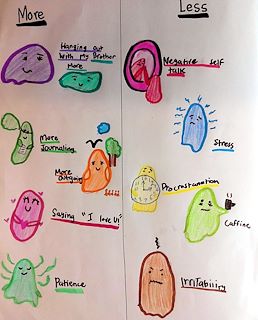 More
Less
Hanging out
With My Brother
More
More
Journaling
More
Outgoing
Saying "I love U"
Patience
Negative self
talk
Stress
Procrastanation
Caffine
Irritability